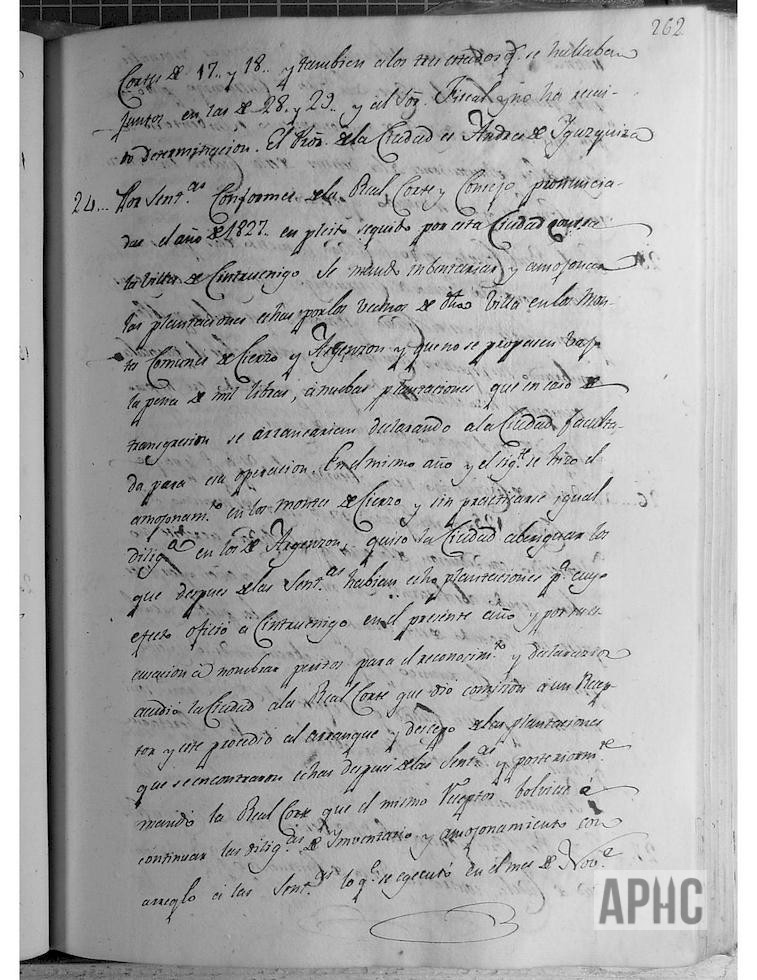 262
Cortes de 17.. y 18.. y tambien a los tres criados q.e se hallaban
juntos en las de 28. y 29.. y al Sor. Fiscal y no ha reci-
do determinacion. El Pror. de la Ciudad es Andres de Yguzquiza
24... Por Sent.as Conformes de la Real Corte y Consejo pronuncia-
das el año de 1827.. en pleito seguido por esta Ciudad contra
la Villa de Cintruenigo se mandó inbentariar y amojonar
las plantaciones echas por los vecinos de dha Villa en los Mon-
tes Comunes de Cierzo y Argenzon y que no se propasen bajo
la pena de mil libras, a nuebas plantaciones que en caso de
transgresion se arrancarian declarando a la Ciudad faculta-
da para esa operacion. En el mismo año y el sig.te se hizo el
amojonam.to en los montes de Cierzo y sin practicarse igual
dilig.a en los de Argenzon, quiso la Ciudad aberiguar los
que despues de las Sent.as habian echo plantaciones p.a cuyo
efecto oficio a Cintruenigo en el presente año y por su es-
cusacion a nombrar peritos para el reconocim.to y declararlos
acudio la Ciudad a la Real Corte que dió comision a un Recep-
tor y este procedio al arranque y descepo de las plantaciones
que se encontraron echas despues de las Sent.as y posteriorm.te
mandó la Real Corte que el mismo Receptor bolviese á
continuar las dilig.as de Inventario y amojonamiento con
arreglo a las Sent.as lo q.e se egecutó en el mes de Nov.e
APHC